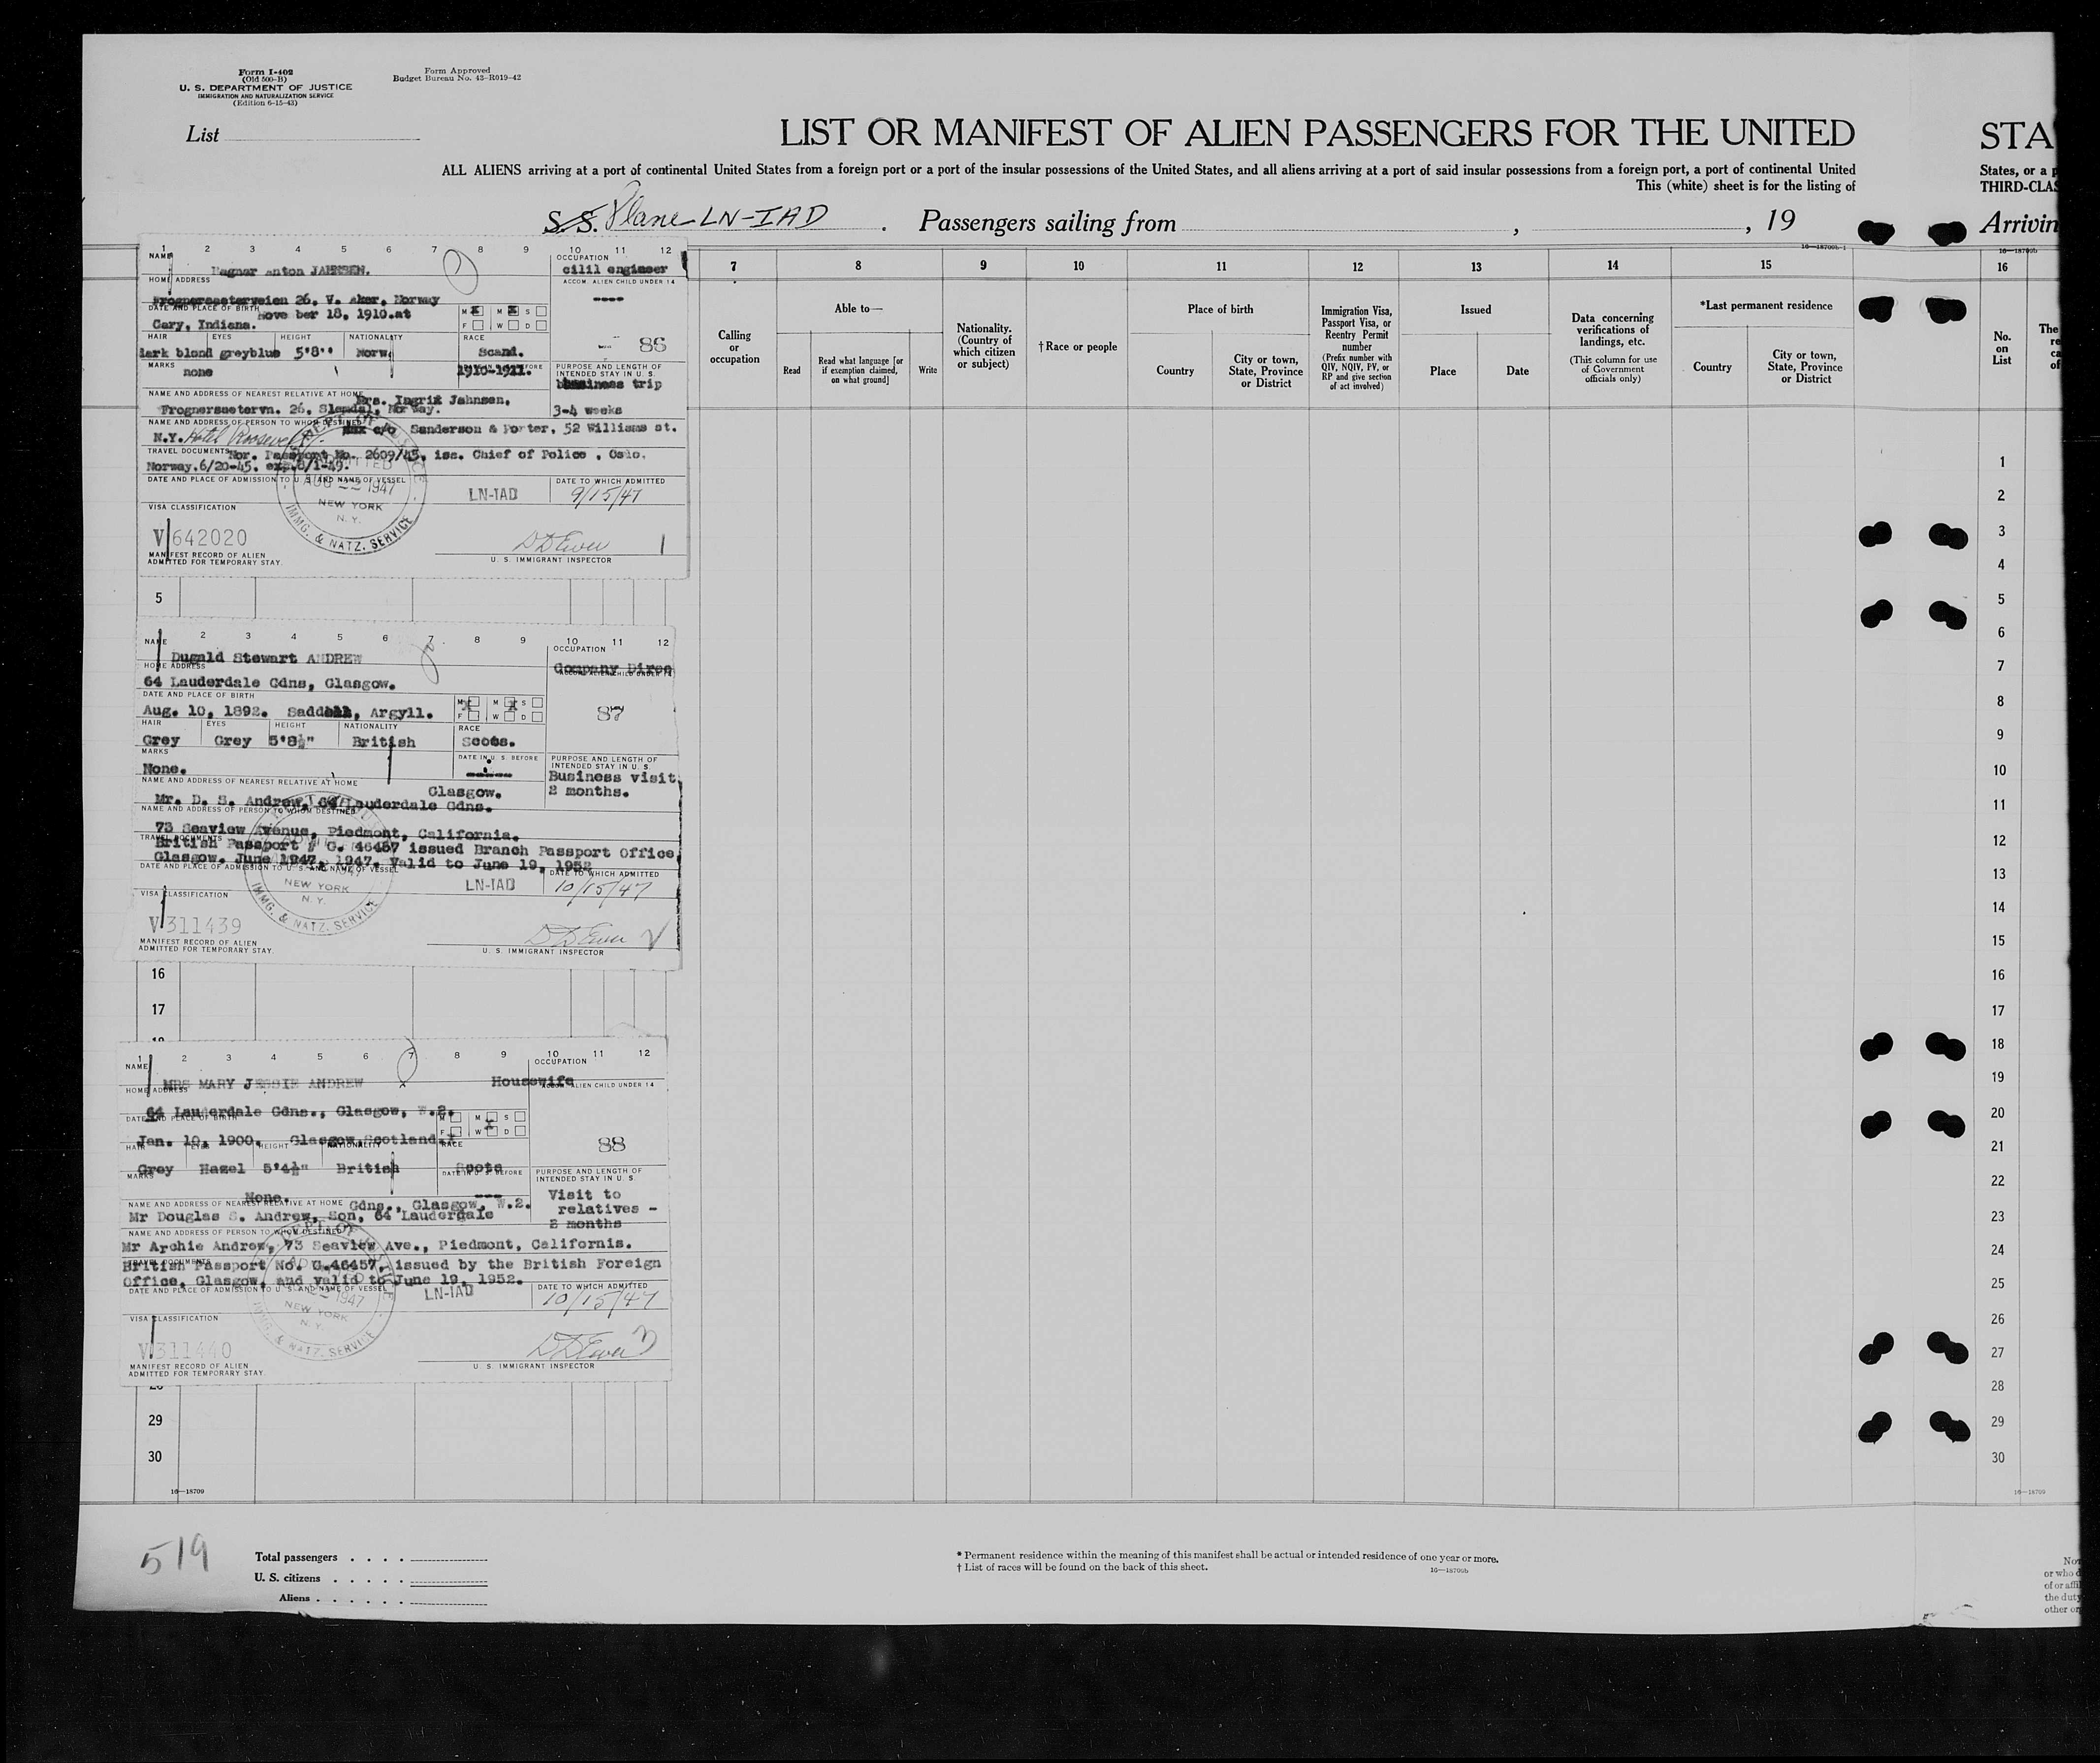 Form I-402
(Old 500-B)
U. S. DEPARTMENT OF JUSTICE
IMMIGRATION AND NATURALIZATION SERVICE
(Edition 6-15-43)
Form Approved
Budget Bureau No. 43-R019-42
List
LIST OR MANIFEST OF ALIEN PASSENGERS FOR THE UNITED
STA
ALL ALIENS arriving at a port of continental United States from a foreign port or a port of the insular possessions of the United States, and all aliens arriving at a port of said insular possessions from a foreign port, a port of continental United
States, or a p
This (white) sheet is for the listing of
THIRD-CLAS
S. S. Plane LN-IAD . Passengers sailing from , , 19
Arrivin
16—18709b-1
16—18709b
1 2 3 4 5 6 7 8 9 10 11 12
NAME
Anton JAHNSEN.
OCCUPATION
cilil engineer
HOME ADDRESS
ACCOM. ALIEN CHILD UNDER 14
Frognersaeterveien 26. V. Aker. Norway
----
DATE AND PLACE OF BIRTH
Nove ber 18, 1910.at
Cary, Indiana.
M X M X S
F W D
HAIR EYES HEIGHT NATIONALITY RACE
86
dark blond greyblue 5'8'' Norw. Scand.
MARKS
none
1910-1911.
PURPOSE AND LENGTH OF
INTENDED STAY IN U. S.
business trip
NAME AND ADDRESS OF NEAREST RELATIVE AT HOME
Mrs. Ingrid Jahnsen,
Frognersaetervn. 26, Slemdal, Norway.
3-4 weeks
NAME AND ADDRESS OF PERSON TO WHOM DESTINED
c/o Sanderson & Porter, 52 Williams st.
N.Y. Hotel Roosevelt
TRAVEL DOCUMENTS
Nor. Passport No. 2609/45, iss. Chief of Police , Oslo.
Norway.6/20-45. ex.
DATE AND PLACE OF ADMISSION TO U. S. AND NAME OF VESSEL
DATE TO WHICH ADMITTED
1947
NEW YORK
N. Y.
IMMG. & NATZ. SERVICE
LN-IAD
9/15/47
VISA CLASSIFICATION
V 642020
MANIFEST RECORD OF ALIEN
ADMITTED FOR TEMPORARY STAY.
D D Ewer 1
U. S. IMMIGRANT INSPECTOR
5
2 3 4 5 6 7 8 9 10 11 12
NAME
OCCUPATION
Dugald Stewart ANDREW
Company Direc
HOME ADDRESS
ACCOM. ALIEN CHILD UNDER 14
64 Lauderdale Gdns, Glasgow.
DATE AND PLACE OF BIRTH
Aug. 10, 1892. Saddell, Argyll.
M X M X S
F W D
87
HAIR EYES HEIGHT NATIONALITY RACE
Grey Grey 5'8½" British Scots.
MARKS
None.
DATE IN U. S. BEFORE
-----
PURPOSE AND LENGTH OF
INTENDED STAY IN U. S.
Business visit,
2 months.
NAME AND ADDRESS OF NEAREST RELATIVE AT HOME
Glasgow.
Mr. D. S. Andrew, 64 Lauderdale Gdns.
NAME AND ADDRESS OF PERSON TO WHOM DESTINED
73 Seaview Avenue, Piedmont, California.
TRAVEL DOCUMENTS
British Passport # C. 46457 issued Branch Passport Office,
Glasgow. June 1947, 1947. Valid to June 19, 1952
DATE AND PLACE OF ADMISSION TO U. S. AND NAME OF VESSEL
DATE TO WHICH ADMITTED
NEW YORK
N. Y.
IMMG. & NATZ. SERVICE
LN-IAD
10/15/47
VISA CLASSIFICATION
V 311439
MANIFEST RECORD OF ALIEN
ADMITTED FOR TEMPORARY STAY.
D D Ewer
U. S. IMMIGRANT INSPECTOR
16
17
1 2 3 4 5 6 7 8 9 10 11 12
NAME
OCCUPATION
MRS MARY JESSIE ANDREW
Housewife
HOME ADDRESS
ACCOM. ALIEN CHILD UNDER 14
64 Lauderdale Gdns., Glasgow, W.2.
DATE AND PLACE OF BIRTH
Jan. 10, 1900. Glasgow,Scotland.
M M X S
F W D
88
HAIR EYES HEIGHT NATIONALITY RACE
Grey Hazel 5'4½" British Scots
MARKS
None.
DATE IN U. S. BEFORE
---
PURPOSE AND LENGTH OF
INTENDED STAY IN U. S.
Visit to
relatives -
2 months
NAME AND ADDRESS OF NEAREST RELATIVE AT HOME
Gdns., Glasgow, W.2.
Mr Douglas S. Andrew, Son, 64 Lauderdale
NAME AND ADDRESS OF PERSON TO WHOM DESTINED
Mr Archie Andrew, 73 Seaview Ave., Piedmont, California.
TRAVEL DOCUMENTS
British Passport No. C.46457, issued by the British Foreign
Office, Glasgow, and valid to June 19, 1952.
DATE AND PLACE OF ADMISSION TO U. S. AND NAME OF VESSEL
DATE TO WHICH ADMITTED
1947
NEW YORK
N. Y.
IMMG. & NATZ. SERVICE
LN-IAD
10/15/47
VISA CLASSIFICATION
V 311440
MANIFEST RECORD OF ALIEN
ADMITTED FOR TEMPORARY STAY.
D D Ewer 3
U. S. IMMIGRANT INSPECTOR
29
30
16—18709
7 8 9 10 11 12 13 14 15 16
Calling
or
occupation
Able to—
Read
Read what language [or
if exemption claimed,
on what ground]
Write
Nationality.
(Country of
which citizen
or subject)
† Race or people
Place of birth
Country
City or town,
State, Province
or District
Immigration Visa,
Passport Visa, or
Reentry Permit
number
(Prefix number with
QIV, NQIV, PV, or
RP and give section
of act involved)
Issued
Place
Date
Data concerning
verifications of
landings, etc.
(This column for use
of Government
officials only)
*Last permanent residence
Country
City or town,
State, Province
or District
No.
on
List
The
re
ca
of
1
2
3
4
5
6
7
8
9
10
11
12
13
14
15
16
17
18
19
20
21
22
23
24
25
26
27
28
29
30
16—18709
519
Total passengers . . . .
U. S. citizens . . . . .
Aliens . . . . . .
* Permanent residence within the meaning of this manifest shall be actual or intended residence of one year or more.
† List of races will be found on the back of this sheet.
16—18709b
No
or who d
of or affil
the duty
other or